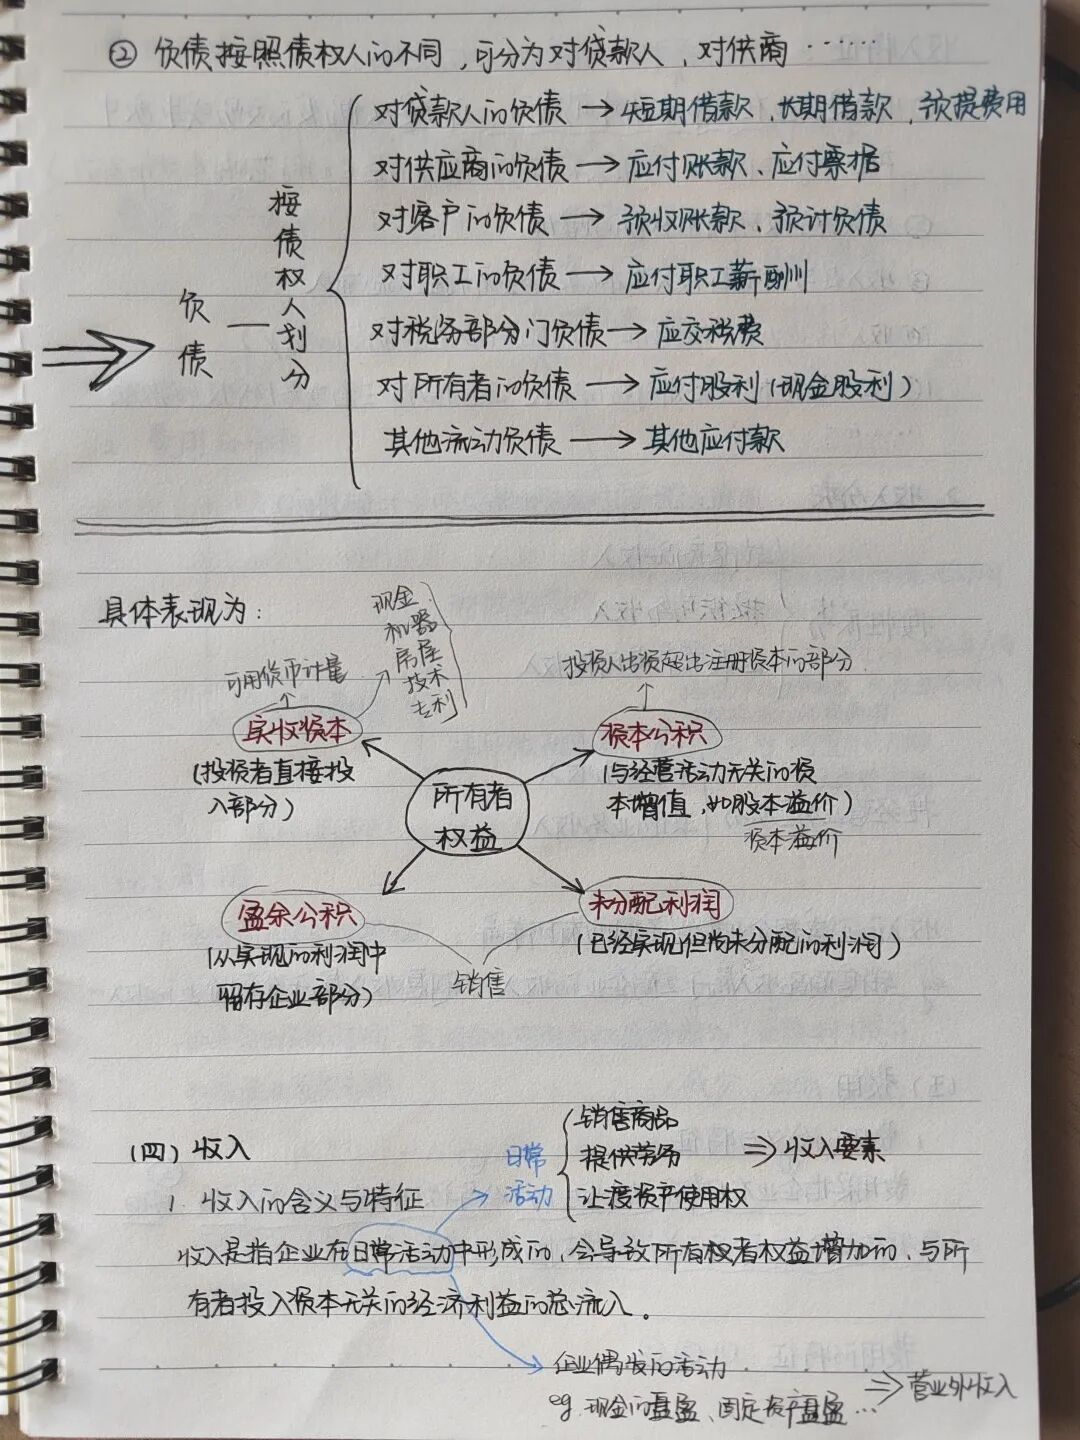 ② 负债按照债权人的不同，可分为对贷款人，对供商……
负债 — 按债权人划分
对贷款人的负债 → 短期借款、长期借款，预提费用
对供应商的负债 → 应付账款、应付票据
对客户的负债 → 预收账款、预计负债
对职工的负债 → 应付职工薪酬
对税务部分门负债 → 应交税费
对所有者的负债 → 应付股利(现金股利)
其他流动负债 → 其他应付款
具体表现为：
现金
机器
房屋
技术
专利
可用货币计量
实收资本
(投资者直接投
入部分)
投资人出资超出注册资本的部分
资本公积
(与经营活动无关的资
本增值，如股本溢价)
资本溢价
所有者
权益
盈余公积
(从实现的利润中
留存企业部分)
未分配利润
(已经实现但尚未分配的利润)
销售
(四) 收入
日常
活动
销售商品
提供劳务
让渡资产使用权
⇒ 收入要素
1. 收入的含义与特征
收入是指企业在日常活动中形成的，会导致所有权者权益增加的、与所
有者投入资本无关的经济利益的总流入。
企业偶发的活动
eg. 现金的盘盈、固定资产盘盈… ⇒ 营业外收入